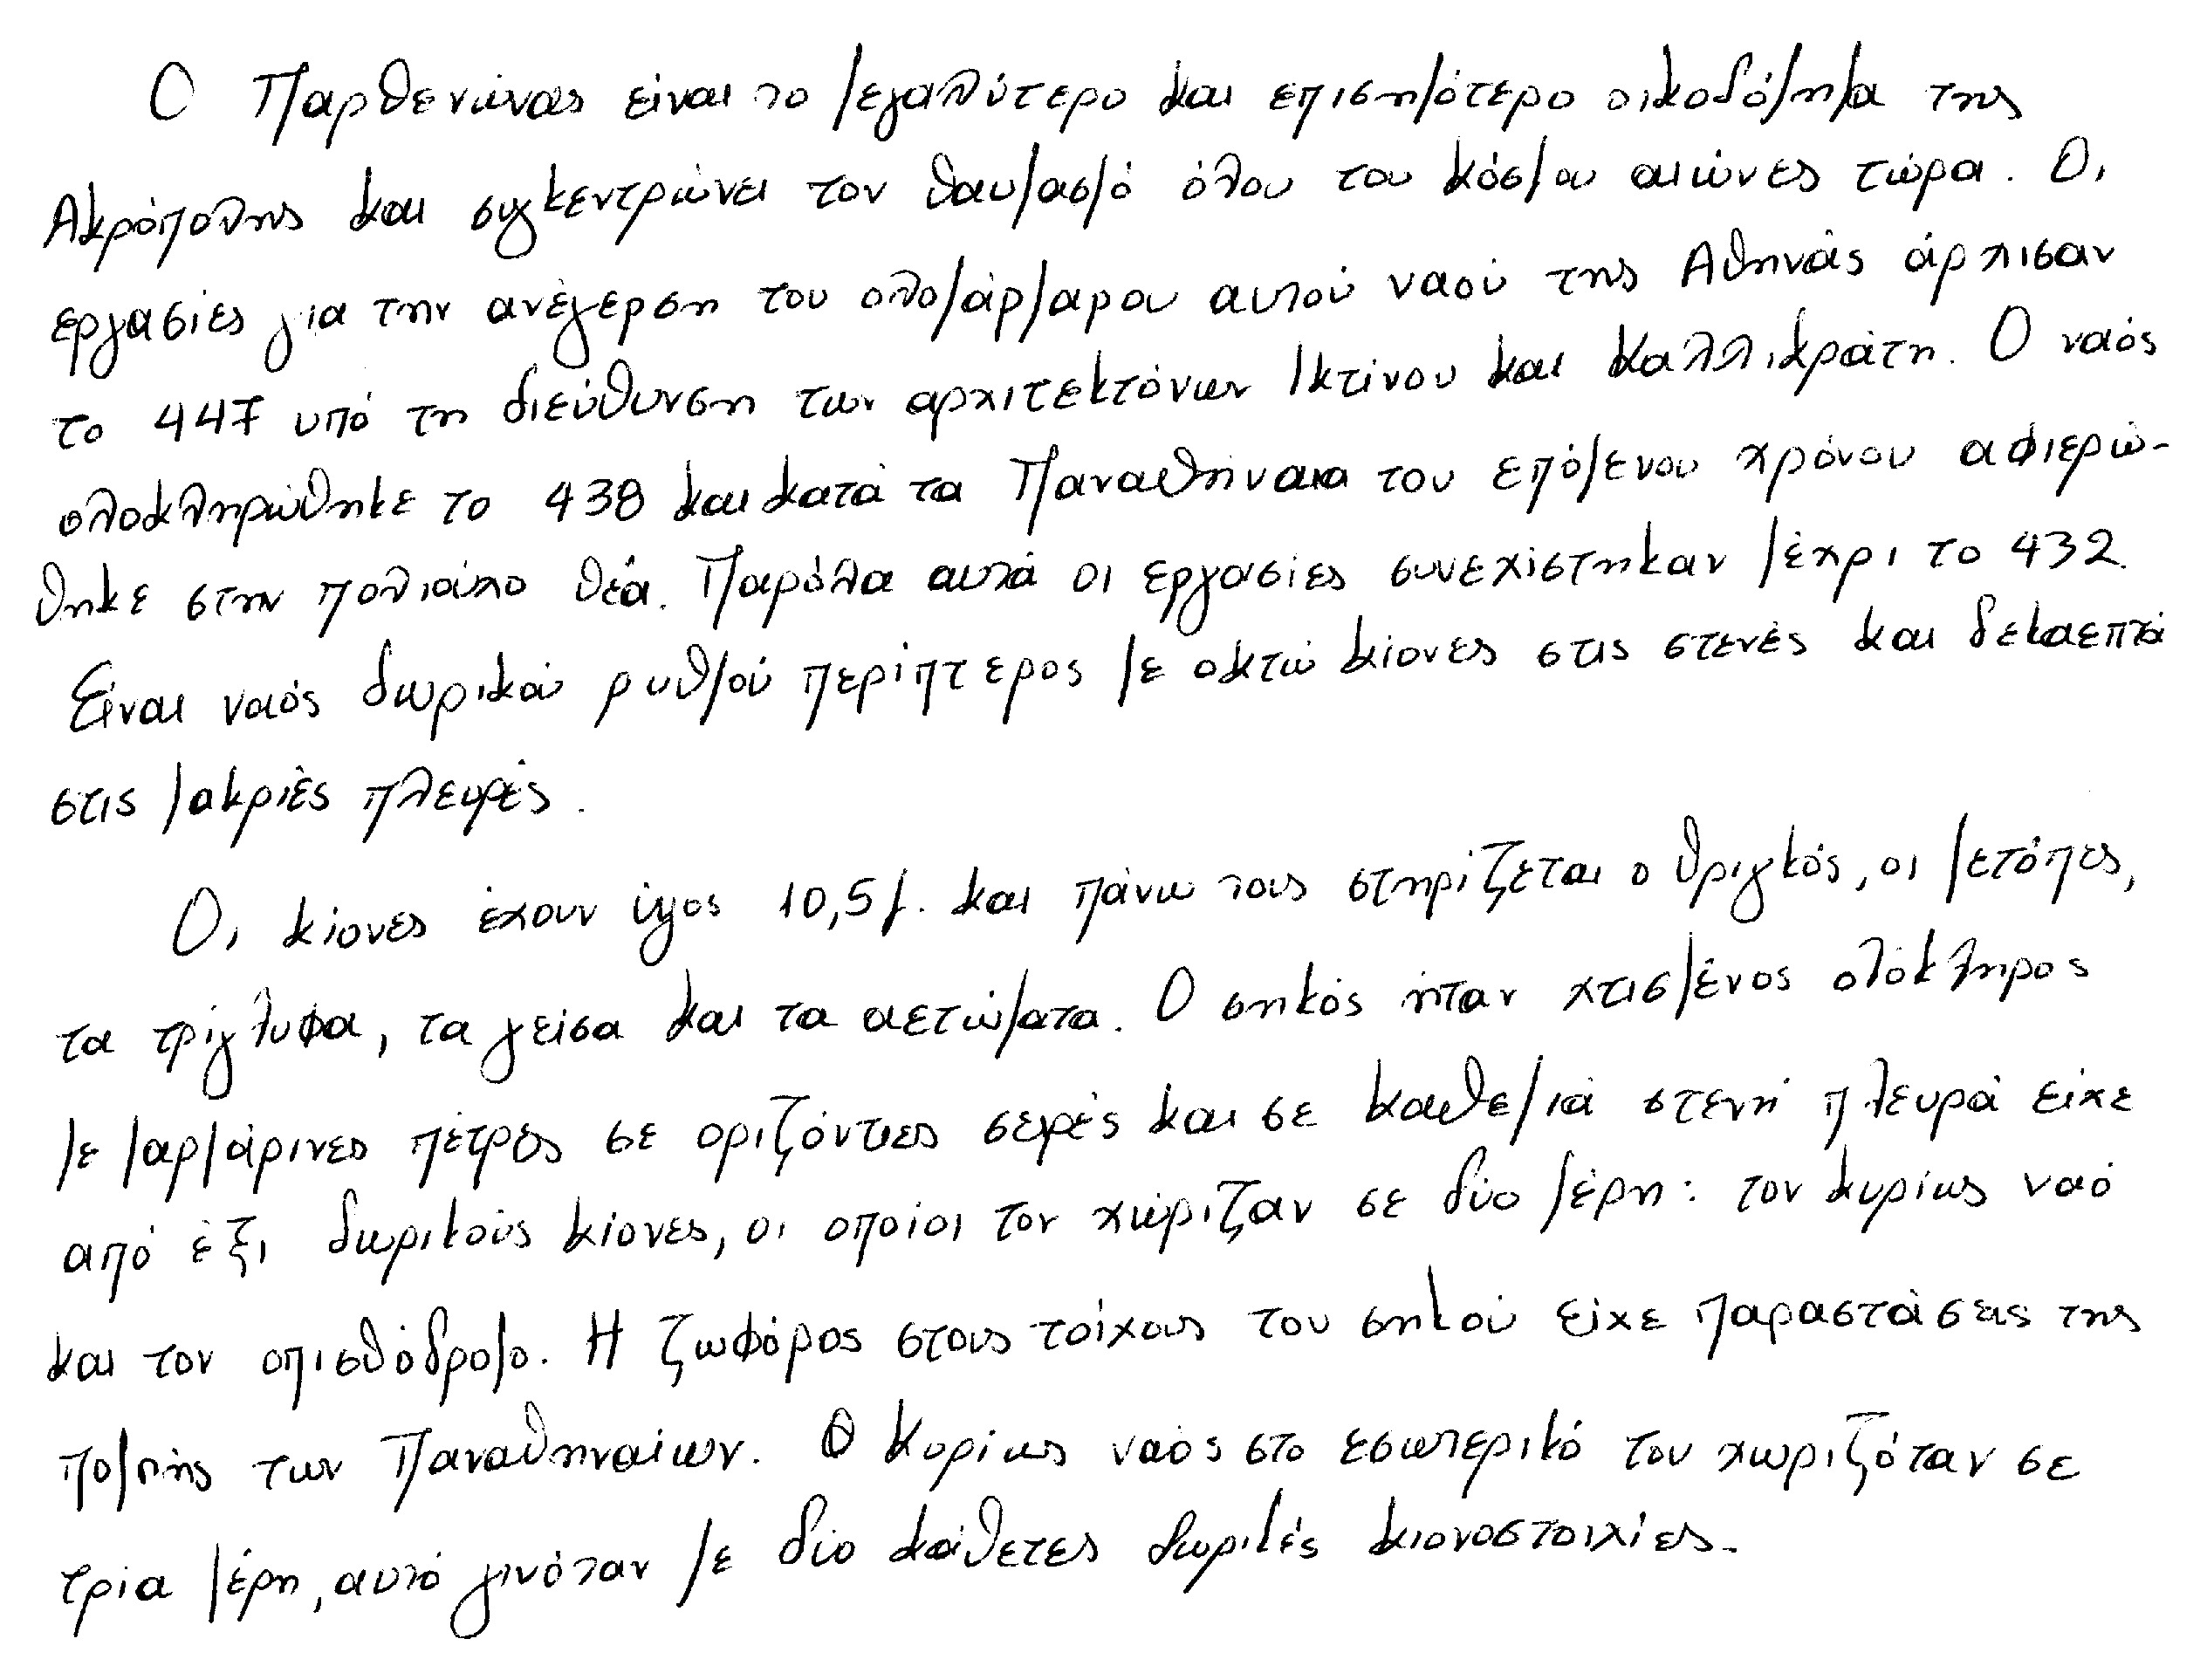 Ο Παρθενώνας είναι το μεγαλύτερο και επισημότερο οικοδόμημα της
Ακρόπολης και συγκεντρώνει τον θαυμασμό όλου του κόσμου αιώνες τώρα. Οι
εργασίες για την ανέγερση του ολομάρμαρου αυτού ναού της Αθηνάς άρχισαν
το 447 υπό τη διεύθυνση των αρχιτεκτόνων Ικτίνου και Καλλικράτη. Ο ναός
ολοκληρώθηκε το 438 και κατά τα Παναθήναια του επόμενου χρόνου αφιερώ-
θηκε στην πολιούχο θεά. Παρόλα αυτά οι εργασίες συνεχίστηκαν μέχρι το 432.
Είναι ναός δωρικού ρυθμού περίπτερος με οκτώ κίονες στις στενές και δεκαεπτά
στις μακριές πλευρές.
Οι κίονες έχουν ύψος 10,5μ. και πάνω τους στηρίζεται ο θριγκός, οι μετόπες,
τα τρίγλυφα, τα γείσα και τα αετώματα. Ο σηκός ήταν χτισμένος ολόκληρος
με μαρμάρινες πέτρες σε οριζόντιες σειρές και σε καθεμιά στενή πλευρά είχε
από έξι δωρικούς κίονες, οι οποίοι τον χώριζαν σε δύο μέρη: τον κυρίως ναό
και τον οπισθόδρομο. Η ζωφόρος στους τοίχους του σηκού είχε παραστάσεις της
πομπής των Παναθηναίων. Ο κυρίως ναός στο εσωτερικό του χωριζόταν σε
τρία μέρη, αυτό γινόταν με δύο κάθετες δωρικές κιονοστοιχίες.